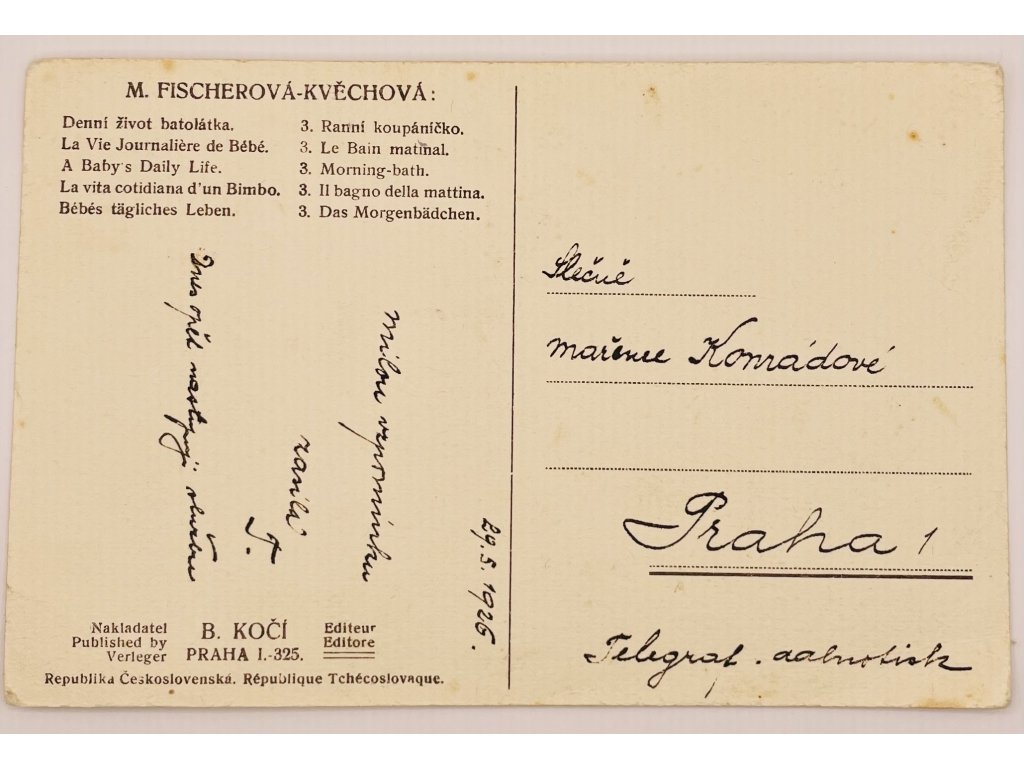 M. FISCHEROVÁ-KVĚCHOVÁ:
Denní život batolátka. 3. Ranní koupáníčko.
La Vie Journalière de Bébé. 3. Le Bain matinal.
A Baby's Daily Life. 3. Morning-bath.
La vita cotidiana d'un Bimbo. 3. Il bagno della mattina.
Bébés tägliches Leben. 3. Das Morgenbädchen.
29.5.1926.
Milou vzpomínku
zasílá
F.
Dnes opět nastupuji službu
Nakladatel
Published by
Verleger
B. KOČÍ
PRAHA I.-325.
Editeur
Editore
Republika Československá. République Tchécoslovaque.
Slečně
Mařence Konrádové
Praha 1
Telegraf.